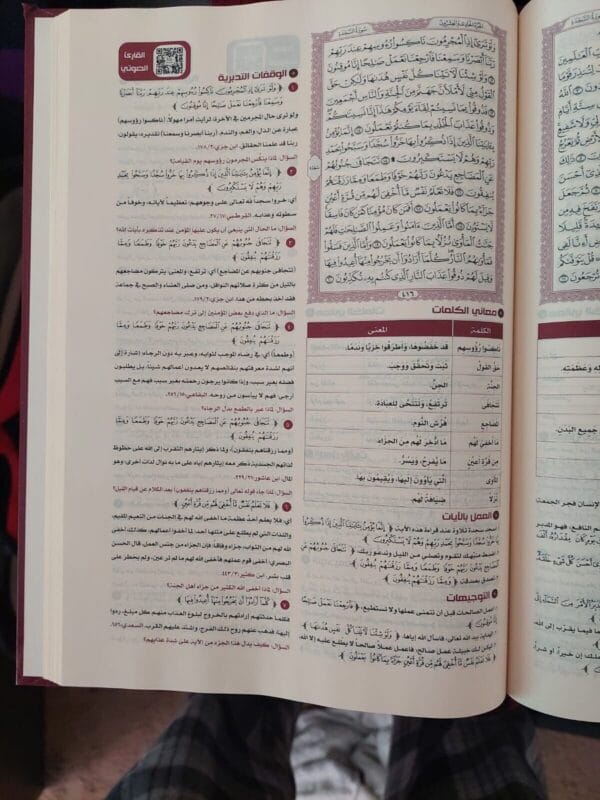 سُورَةُ السَّجْدَةِ
الجزء الحادي والعشرون
وَلَوْ تَرَىٰ إِذِ الْمُجْرِمُونَ نَاكِسُو رُءُوسِهِمْ عِندَ رَبِّهِمْ
رَبَّنَا أَبْصَرْنَا وَسَمِعْنَا فَارْجِعْنَا نَعْمَلْ صَالِحًا إِنَّا مُوقِنُونَ
۝١٢ وَلَوْ شِئْنَا لَآتَيْنَا كُلَّ نَفْسٍ هُدَاهَا وَلَٰكِنْ حَقَّ
الْقَوْلُ مِنِّي لَأَمْلَأَنَّ جَهَنَّمَ مِنَ الْجِنَّةِ وَالنَّاسِ أَجْمَعِينَ
۝١٣ فَذُوقُوا بِمَا نَسِيتُمْ لِقَاءَ يَوْمِكُمْ هَٰذَا إِنَّا نَسِينَاكُمْ
وَذُوقُوا عَذَابَ الْخُلْدِ بِمَا كُنتُمْ تَعْمَلُونَ ۝١٤ إِنَّمَا يُؤْمِنُ
بِآيَاتِنَا الَّذِينَ إِذَا ذُكِّرُوا بِهَا خَرُّوا سُجَّدًا وَسَبَّحُوا بِحَمْدِ
رَبِّهِمْ وَهُمْ لَا يَسْتَكْبِرُونَ ۩ ۝١٥ تَتَجَافَىٰ جُنُوبُهُمْ
عَنِ الْمَضَاجِعِ يَدْعُونَ رَبَّهُمْ خَوْفًا وَطَمَعًا وَمِمَّا رَزَقْنَاهُمْ
يُنفِقُونَ ۝١٦ فَلَا تَعْلَمُ نَفْسٌ مَّا أُخْفِيَ لَهُم مِّن قُرَّةِ أَعْيُنٍ
جَزَاءً بِمَا كَانُوا يَعْمَلُونَ ۝١٧ أَفَمَن كَانَ مُؤْمِنًا كَمَن كَانَ فَاسِقًا
لَّا يَسْتَوُونَ ۝١٨ أَمَّا الَّذِينَ آمَنُوا وَعَمِلُوا الصَّالِحَاتِ فَلَهُمْ
جَنَّاتُ الْمَأْوَىٰ نُزُلًا بِمَا كَانُوا يَعْمَلُونَ ۝١٩ وَأَمَّا الَّذِينَ فَسَقُوا
فَمَأْوَاهُمُ النَّارُ كُلَّمَا أَرَادُوا أَن يَخْرُجُوا مِنْهَا أُعِيدُوا فِيهَا
وَقِيلَ لَهُمْ ذُوقُوا عَذَابَ النَّارِ الَّذِي كُنتُم بِهِ تُكَذِّبُونَ ۝٢٠
سجدة
٤١٦
معاني الكلمات
الكلمة المعنى
نَاكِسُوا رُؤُوسِهِم قد خَفَضُوهَا، وَأَطْرَقُوا خِزْيًا وَنَدَمًا.
حَقَّ القَوْلُ ثَبَتَ وَتَحَقَّقَ وَوَجَبَ.
الجِنَّة الجِنُّ.
تَتَجَافَى تَرْتَفِعُ، وَتَتَنَحَّى لِلعِبَادَةِ.
المَضَاجِعِ فُرُشِ النَّومِ.
مَا أُخْفِيَ لَهُم مَا ادُّخِرَ لَهُم مِنَ الجَزَاء.
مِن قُرَّةِ أَعْيُنٍ مَا يُفْرِحُ، وَيَسُرُّ.
المَأوَى الَّتِي يَأْوُونَ إِلَيهَا، وَيُقِيمُونَ بِهَا.
نُزُلًا ضِيَافَةً لَهُم.
العمل بالآيات
١. اسجد سجدة تلاوة عند قراءة هذه الآية ﴿ إِنَّمَا يُؤْمِنُ بِآيَاتِنَا الَّذِينَ إِذَا ذُكِّرُوا
بِهَا خَرُّوا سُجَّدًا وَسَبَّحُوا بِحَمْدِ رَبِّهِمْ وَهُمْ لَا يَسْتَكْبِرُونَ ﴾
٢. اضبط منبهك لتقوم وتصلي من الليل وتدعو ربك، ﴿ تَتَجَافَىٰ جُنُوبُهُمْ عَنِ
الْمَضَاجِعِ يَدْعُونَ رَبَّهُمْ خَوْفًا وَطَمَعًا وَمِمَّا رَزَقْنَاهُمْ يُنفِقُونَ ﴾
٣. تصدق بصدقة، ﴿ وَمِمَّا رَزَقْنَاهُمْ يُنفِقُونَ ﴾
التوجيهات
١. اعمل الصالحات قبل أن تتمنى عملها ولا تستطيع، ﴿ فَارْجِعْنَا نَعْمَلْ صَالِحًا
إِنَّا مُوقِنُونَ ﴾
٢. الهداية بيد الله تعالى، فاسأل الله إياها، ﴿ وَلَوْ شِئْنَا لَآتَيْنَا كُلَّ نَفْسٍ هُدَاهَا ﴾
٣. ليكن لك خبيئة عمل صالح، فاعمل عملاً صالحاً لا يطلع عليه إلا الله،
﴿ فَلَا تَعْلَمُ نَفْسٌ مَّا أُخْفِيَ لَهُم مِّن قُرَّةِ أَعْيُنٍ جَزَاءً بِمَا كَانُوا يَعْمَلُونَ ﴾
القارئ
الصوتي
الوقفات التدبرية
١ ﴿ وَلَوْ تَرَىٰ إِذِ الْمُجْرِمُونَ نَاكِسُو رُءُوسِهِمْ عِندَ رَبِّهِمْ رَبَّنَا أَبْصَرْنَا
وَسَمِعْنَا فَارْجِعْنَا نَعْمَلْ صَالِحًا إِنَّا مُوقِنُونَ ﴾
ولو ترى حال المجرمين في الآخرة لرأيت أمراً مهولاً. (ناكسوا رؤوسهم)
عبارة عن الذل، والغم، والندم. (ربنا أبصرنا وسمعنا) تقديره: يقولون:
ربنا قد علمنا الحقائق. ابن جزي:٢/١٧٨.
السؤال: لماذا ينكس المجرمون رؤوسهم يوم القيامة؟
٢ ﴿ إِنَّمَا يُؤْمِنُ بِآيَاتِنَا الَّذِينَ إِذَا ذُكِّرُوا بِهَا خَرُّوا سُجَّدًا وَسَبَّحُوا بِحَمْدِ
رَبِّهِمْ وَهُمْ لَا يَسْتَكْبِرُونَ ﴾
أي: خروا سجداً لله تعالى على وجوههم؛ تعظيماً لآياته، وخوفاً من
سطوته وعذابه. القرطبي:١٧/٢٧.
السؤال: ما الحال التي ينبغي أن يكون عليها المؤمن عند تذكيره بآيات الله؟
٣ ﴿ تَتَجَافَىٰ جُنُوبُهُمْ عَنِ الْمَضَاجِعِ يَدْعُونَ رَبَّهُمْ خَوْفًا وَطَمَعًا وَمِمَّا
رَزَقْنَاهُمْ يُنفِقُونَ ﴾
(تتجافى جنوبهم عن المضاجع) أي: ترتفع؛ والمعنى: يتركون مضاجعهم
بالليل من كثرة صلاتهم النوافل، ومن صلى العشاء والصبح في جماعة
فقد أخذ بحظه من هذا. ابن جزي:٢/١٧٩.
السؤال: ما الذي دفع بعض المؤمنين إلى ترك مضاجعهم؟
٤ ﴿ تَتَجَافَىٰ جُنُوبُهُمْ عَنِ الْمَضَاجِعِ يَدْعُونَ رَبَّهُمْ خَوْفًا وَطَمَعًا وَمِمَّا
رَزَقْنَاهُمْ يُنفِقُونَ ﴾
(وطمعاً) أي: في رضاه الموجب لثوابه، وعبر به دون الرجاء؛ إشارة إلى
أنهم لشدة معرفتهم بنقائصهم لا يعدون أعمالهم شيئاً، بل يطلبون
فضله بغير سبب، وإذا كانوا يرجون رحمته بغير سبب فهم مع السبب
أرجى، فهم لا ييأسون من روحه. البقاعي:١٥/٢٥٦.
السؤال: لماذا عبر بالطمع بدل الرجاء؟
٥ ﴿ تَتَجَافَىٰ جُنُوبُهُمْ عَنِ الْمَضَاجِعِ يَدْعُونَ رَبَّهُمْ خَوْفًا وَطَمَعًا وَمِمَّا
رَزَقْنَاهُمْ يُنفِقُونَ ﴾
(ومما رزقناهم ينفقون): ولما ذكر إيثارهم التقرب إلى الله على حظوظ
لذاتهم الجسدية ذكر معه إيثارهم إياه على ما به نوال لذات أخرى؛ وهو
المال. ابن عاشور:٢١/٢٢٩.
السؤال: لماذا جاء قوله تعالى (ومما رزقناهم ينفقون) بعد الكلام عن قيام الليل؟
٦ ﴿ فَلَا تَعْلَمُ نَفْسٌ مَّا أُخْفِيَ لَهُم مِّن قُرَّةِ أَعْيُنٍ ﴾
أي: فلا يعلم أحد عظمة ما أخفى الله لهم في الجنات من النعيم المقيم،
واللذات التي لم يطلع على مثلها أحد، لما أخفوا أعمالهم، كذلك أخفى
الله لهم من الثواب، جزاء وفاقا؛ فإن الجزاء من جنس العمل. قال الحسن
البصري: أخفى قوم عملهم فأخفى الله لهم ما لم تر عين، ولم يخطر على
قلب بشر. ابن كثير:٣/٤٤٣.
السؤال: لماذا أخفى الله الكثير من جزاء أهل الجنة؟
٧ ﴿ كُلَّمَا أَرَادُوا أَن يَخْرُجُوا مِنْهَا أُعِيدُوا فِيهَا ﴾
فكلما حدثتهم إرادتهم بالخروج لبلوغ العذاب منهم كل مبلغ، ردوا
إليها، فذهب عنهم روح ذلك الفرج، واشتد عليهم الكرب. السعدي:٦٥٦.
السؤال: كيف يدل هذا الجزء من الآية على شدة عذابهم؟